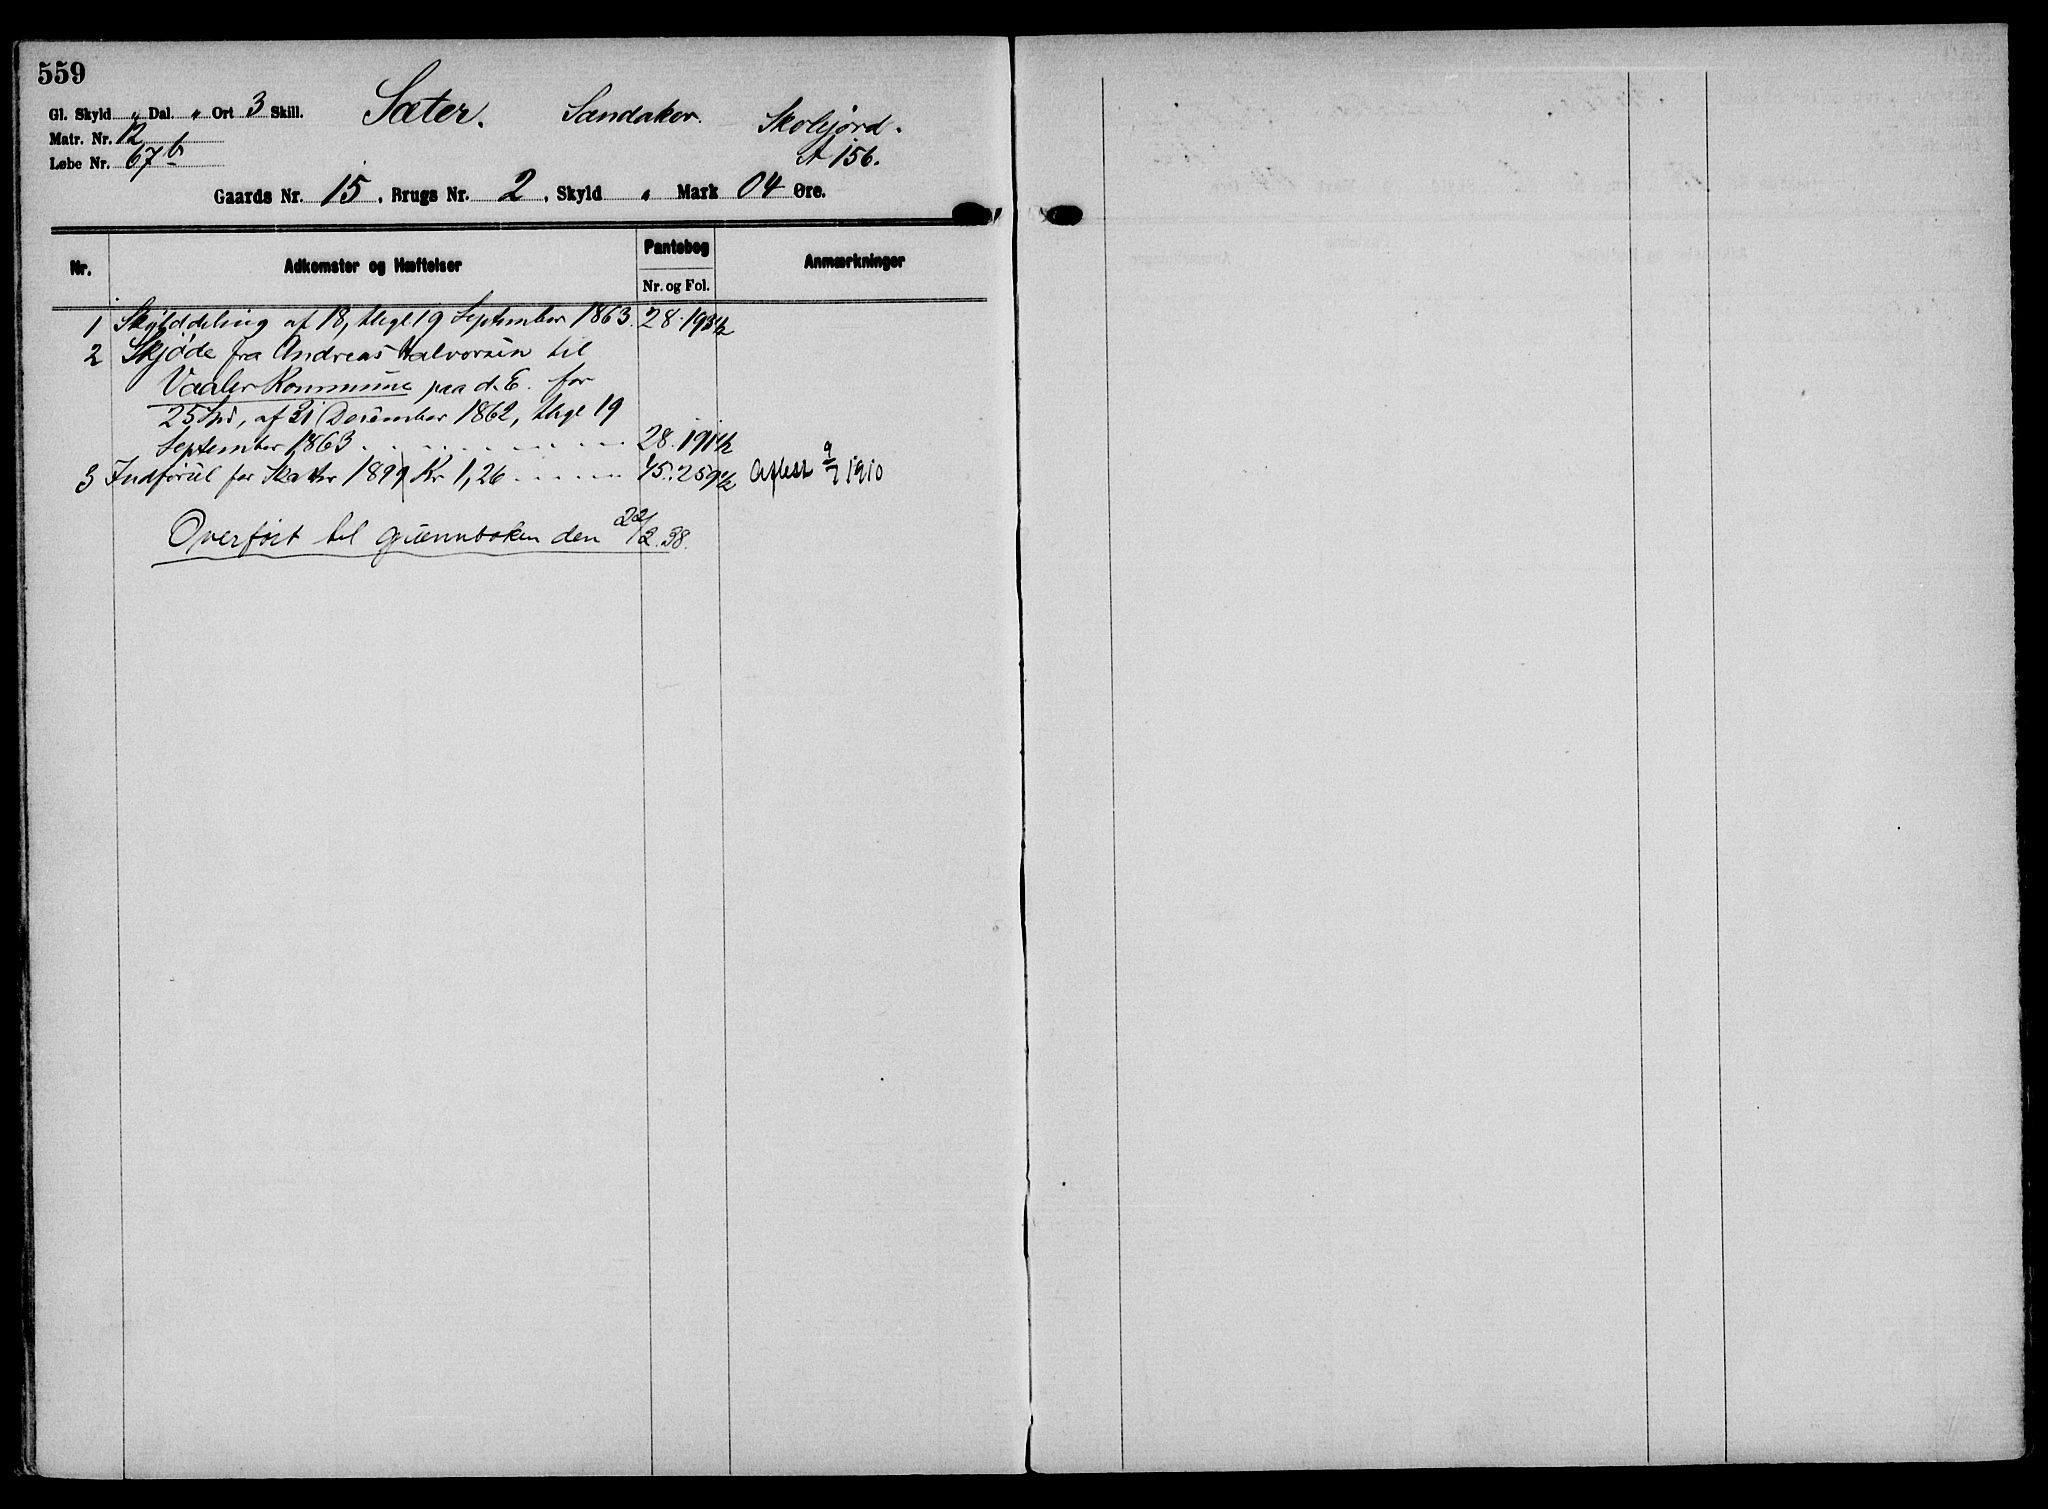 559
Gl. Skyld „ Dal. „ Ort 3 Skill. Sæter. Sandaker. Skolejord.
Matr. Nr. 12
Løbe Nr. 67b A 156.
Gaards Nr. 15, Brugs Nr. 2, Skyld „ Mark 04 Øre.
Nr. Adkomster og Hæftelser Pantebog Nr. og Fol. Anmærkninger
1 Skylddeling af 18, thgl 19 September 1863. 28.193 1/2
2 Skjøde fra Andreas Halvorsen til
Vaaler Kommune paa d. E. for
25 Spd, af 31 December 1862, thgl 19
September 1863 28.191 1/2
3 Indførsel for Skatter 1899 Kr 1,26 45.259 1/2 Aflest 9/7 1910
Overført til grunnboken den 22/2.38.